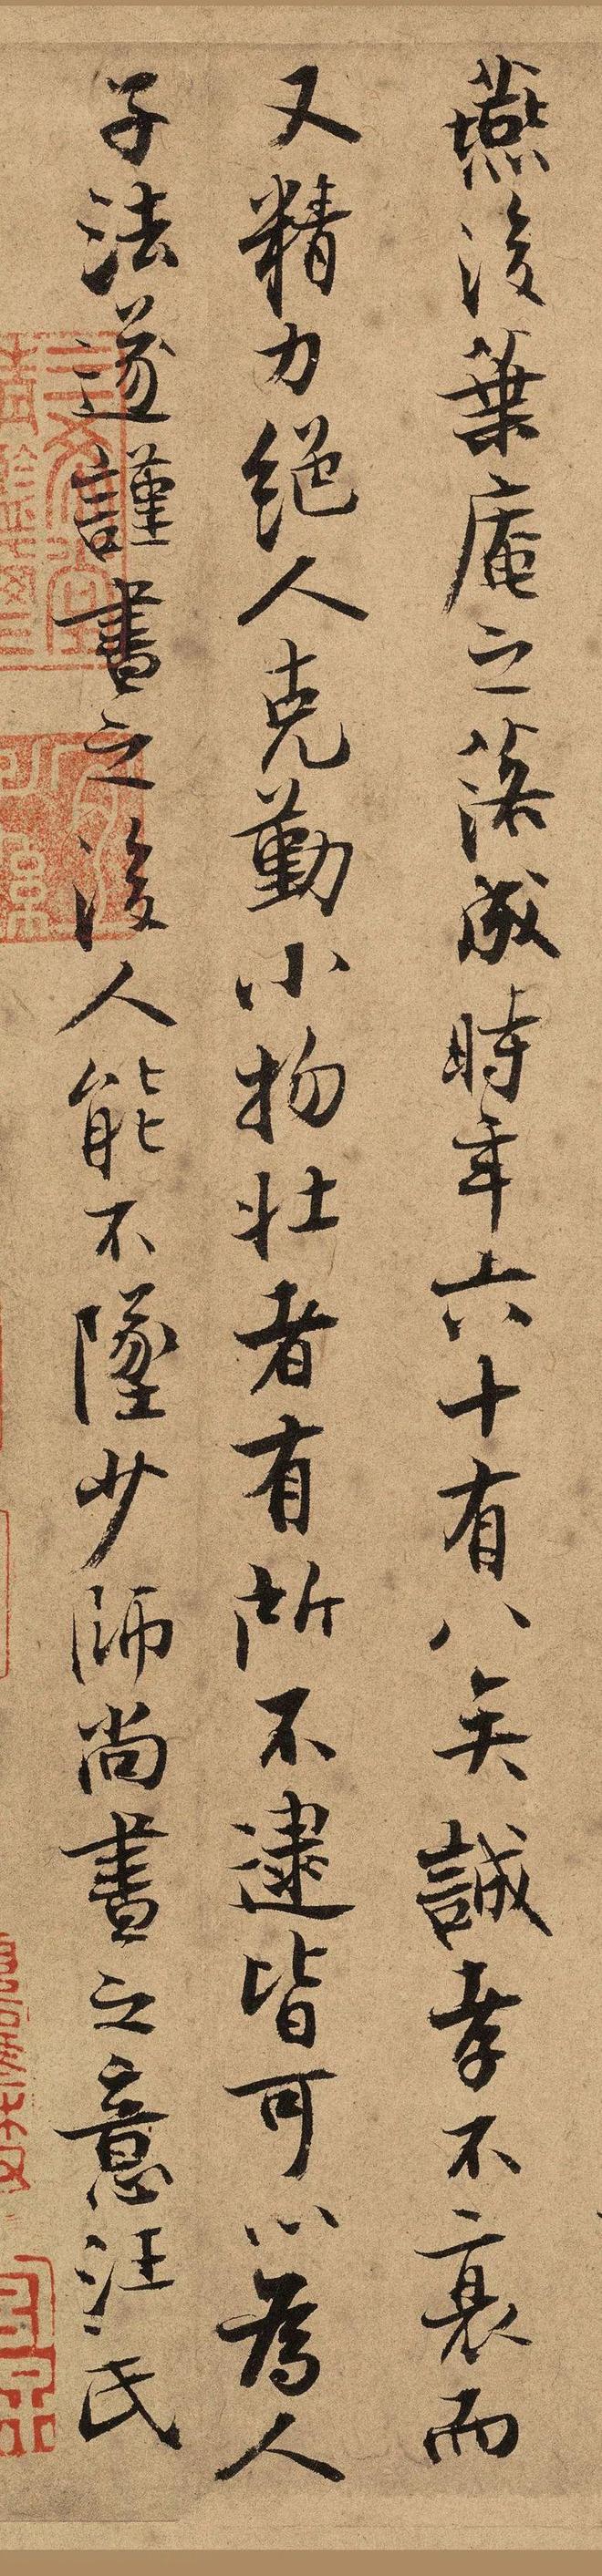 燕後葉庵之落成時年六十有八矣誠孝不衰而
又精力絕人克勤小物壯者有所不逮皆可以為人
子法遂謹書之後人能不墜少師尚書之意汪氏